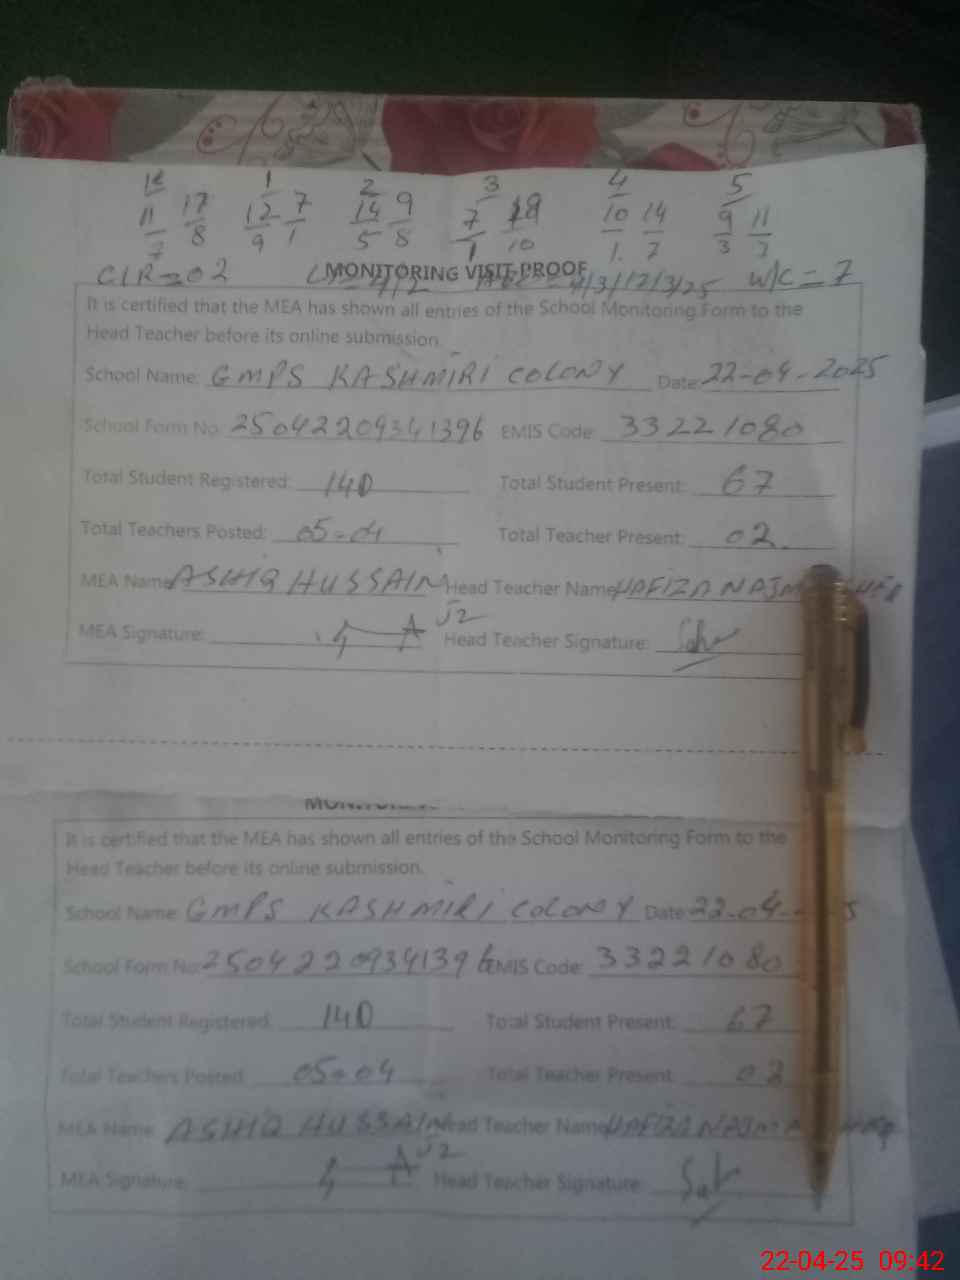 1 2 3 4 5
11 17 12 7 14 9 7 10 14 9 11
7 8 9 1 5 8 1 10 1. 7 3 7
CLR=02 W/C=7
MONITORING VISIT PROOF
It is certified that the MEA has shown all entries of the School Monitoring Form to the
Head Teacher before its online submission.
School Name: GMPS KASHMIRI COLONY Date: 22-04-2025
School Form No: 25042209341396 EMIS Code: 33221080
Total Student Registered: 140 Total Student Present: 67
Total Teachers Posted: 05-04 Total Teacher Present: 02
MEA Name ASHIQ HUSSAIN Head Teacher Name HAFIZA
MEA Signature: Head Teacher Signature:
It is certified that the MEA has shown all entries of the School Monitoring Form to the
Head Teacher before its online submission.
School Name: GMPS KASHMIRI COLONY Date 22-04-
School Form No: 25042209341396 EMIS Code: 33221080
Total Student Registered: 140 Total Student Present: 67
Total Teachers Posted: 05-04 Total Teacher Present: 02
MEA Name: ASHIQ HUSSAIN Head Teacher Name HAFIZA
MEA Signature: Head Teacher Signature:
22-04-25 09:42